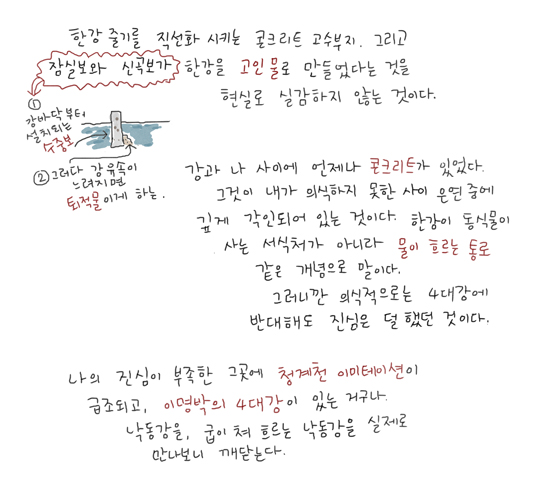 한강 줄기를 직선화 시키는 콘크리트 고수부지. 그리고
잠실보와 신곡보가 한강을 고인물로 만들었다는 것을
현실로 실감하지 않는 것이다.
①
강바닥부터
설치되는
수중보
②그러다 강 유속이
느려지면
퇴적물이게 하는.
강과 나 사이에 언제나 콘크리트가 있었다.
그것이 내가 의식하지 못한 사이 은연 중에
깊게 각인되어 있는 것이다. 한강이 동식물이
사는 서식처가 아니라 물이 흐르는 통로
같은 개념으로 말이다.
그러니깐 의식적으로는 4대강에
반대해도 진심은 덜 했던 것이다.
나의 진심이 부족한 그곳에 청계천 이미테이션이
급조되고, 이명박의 4대강이 있는 거구나.
낙동강을, 굽이 쳐 흐르는 낙동강을 실제로
만나보니 깨닫는다.